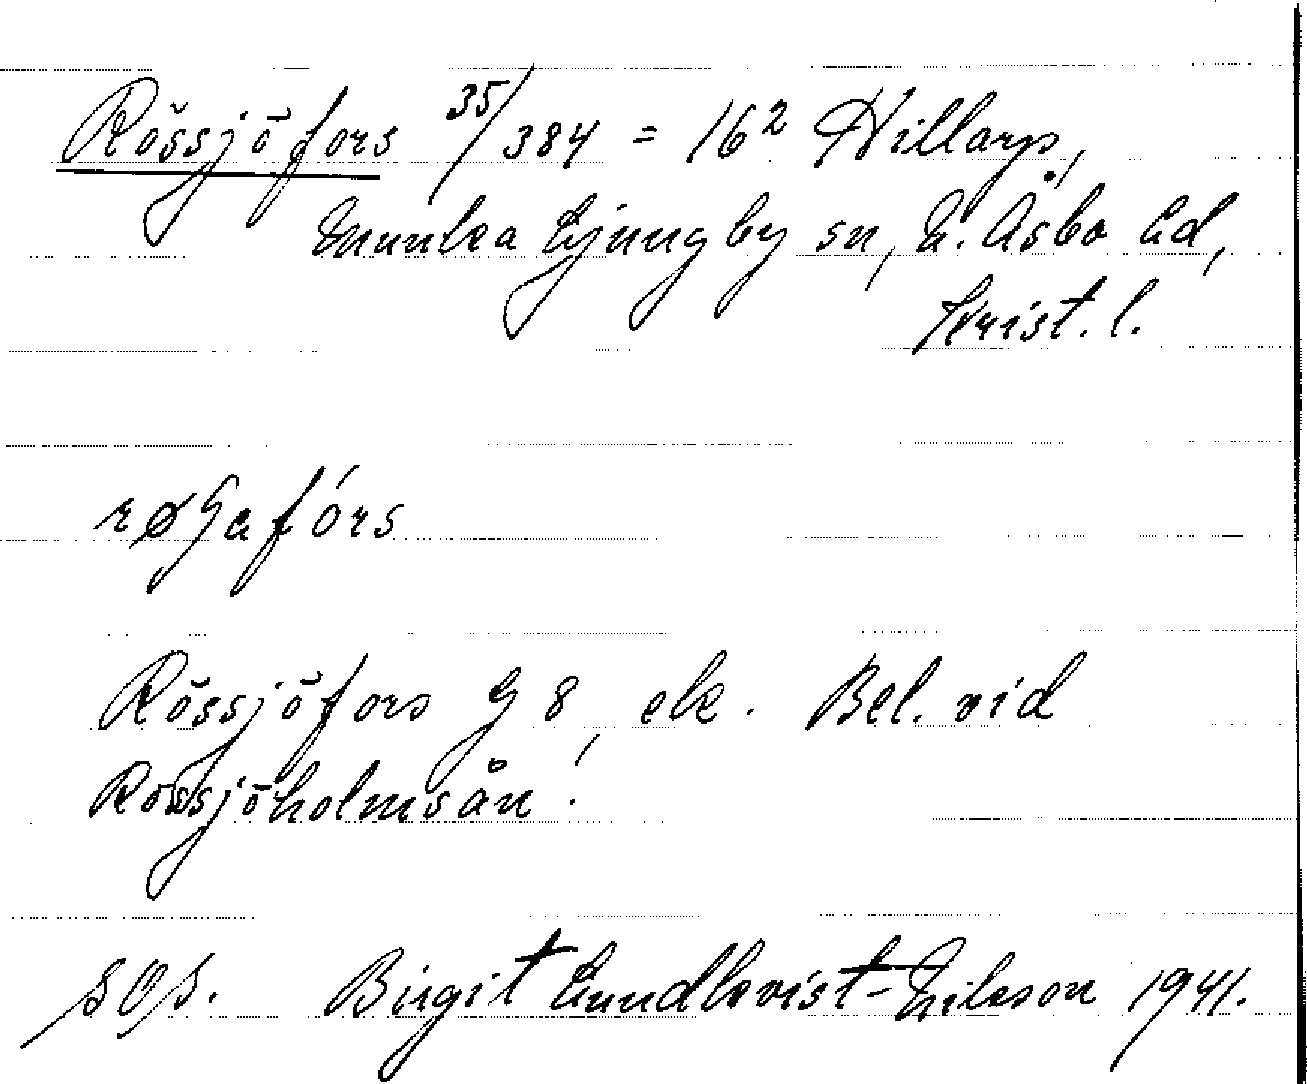 Rössjöfors 35/384 = 16² Hillarp,
Munka Ljungby sn, N. Åsbo hd,
Krist. l.
Rössjöfors G 8, ek. Bel. vid
Rössjöholmsån!
Birgit Lundkvist-Nilsson 1941.